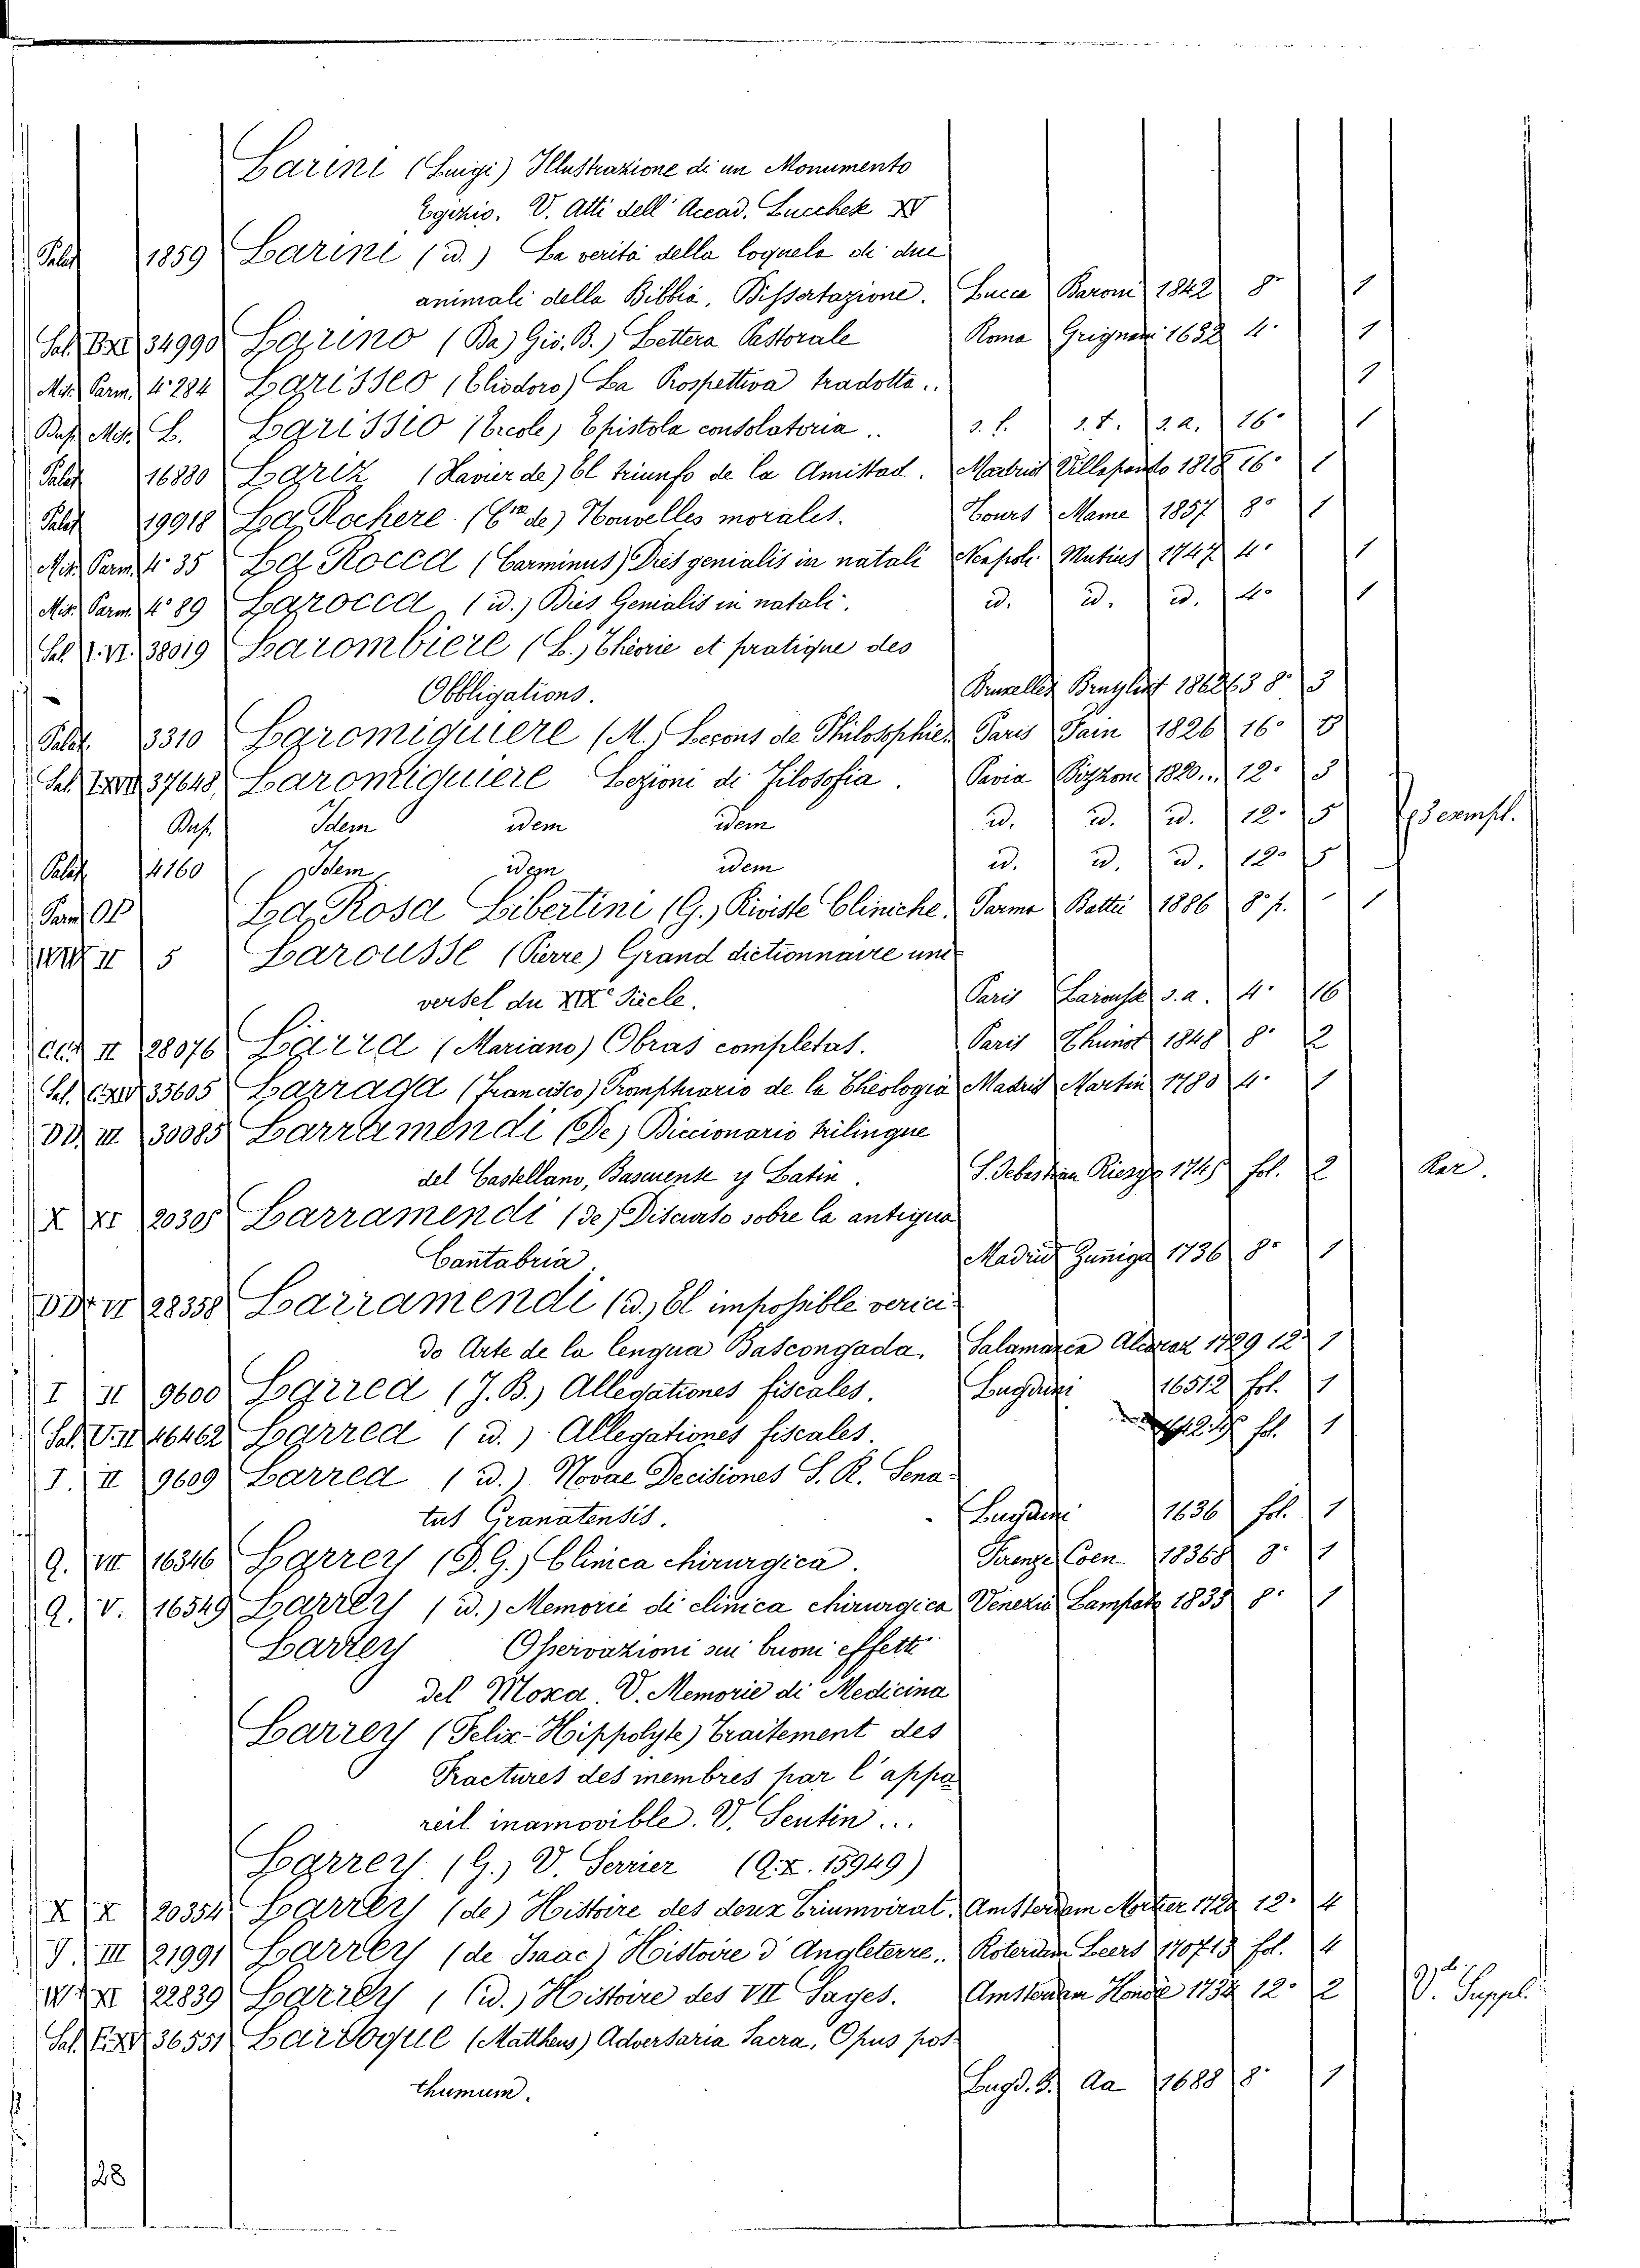 Larini (Luigi) Illustrazione di un Monumento
Egizio. V. Atti dell' Accad. Lucchese XV
Palat 1859 Larini (id.) La verità della loquela di due
animali della Bibbia, Dissertazione. Lucca Baroni 1842 8° 1
34990 Larino (Da) Gio. B.) Lettera Pastorale Roma Grignani 1632 4° 1
Mis. Parm. 4° 284 Larisseo (Eliodoro) La Prospettiva tradotta.. 1
L. Larissio (Ercole) Epistola consolatoria.. s.l. s.t. s.a. 16° 1
Palat 16880 Lariz (Xavier de) El triunfo de la Amistad. Madrid Villapando 16° 1
Palat 19918 La Rochere (C.sse de) Nouvelles morales. Tours Mame 1857 8° 1
Mis. Parm. 4° 35 La Rocca (Carminus) Dies genialis in natali Neapoli Mutius 1747 4° 1
Mis. Parm. 4° 89 Larocca (id.) Dies Genialis in natali. id. id. id. 4° 1
Sal. V. VI. 38019 Larombiere (L.) Théorie et pratique des
Obbligations. Bruxelles Bruylant 186263 8° 3
Palat. 3310 Laromiquiere (M.) Leçons de Philosophie. Paris Pain 1826 16° 3
37648 Laromiquiere Lezioni di Filosofia. Pavia Bizzoni 1820.. 12° 5
Idem idem idem id. id. id. 12° 5 esempl.
Palat. 4160 Idem idem idem id. id. id. 12° 5
Parm La Rosa Libertini (G.) Riviste Cliniche. Parma Battei 1886 8° p. 1
II 5 Larousse (Pierre) Grand dictionnaire uni-
versel du XIX° Siècle. Paris Larousse s.a. 4° 16
II 28076 Larra (Mariano) Obras completas. Paris Thunot 1848 8° 2
35605 Larraga (Francisco) Promptuario de la Theologia Madrid Martin 1780 4° 1
DD. III 30085 Larramendi (De) Diccionario trilingue
del Castellano, Bascuense y Latin. S. Sebastian 1745 fol. 2
X XI 20305 Larramendi (De) Discurso sobre la antigua
Cantabria. Madrid Zuniga 1736 8° 1
28358 Larramendi (id.) El impossible venci-
do Arte de la lengua Bascongada. Salamanca 1729 12° 1
I II 9600 Larrea (J. B.) Allegationes fiscales. Lugduni 16512 fol. 1
46462 Larrea (id.) Allegationes fiscales. fol. 1
I. II 9609 Larrea (id.) Novae Decisiones S. R. Sena-
tus Granatensis. Lugduni 1636 fol. 1
Q. VII 16346 Larrey (D. G.) Clinica chirurgica. Firenze Coen 18368 8° 1
Q. V. 16549 Larrey (id.) Memorie di clinica chirurgica Venezia Lampato 1835 8° 1
Larrey Osservazioni sui buoni effetti
del Moxa. V. Memorie di Medicina
Larrey (Felix-Hippolyte) Traitement des
Fractures des membres par l'appa
reil inamovible. V. Seutin...
Larrey (G.) V. Serrier (Q. X. 15949)
X X 20354 Larrey (de) Histoire des deux Triumvirat. Amsterdam Mortier 12° 4
J. III 21991 Larrey (de Isaac) Histoire d'Angleterre. Roterdam Leers 170713 fol. 4
XI 22839 Larrey (id.) Histoire des VII Sages. Amsterdam 12° 2 V. Suppl.
36551 Larroque (Matthæus) Adversaria Sacra, Opus pos-
thumum. Lugd. B. Aa 1688 8° 1
128